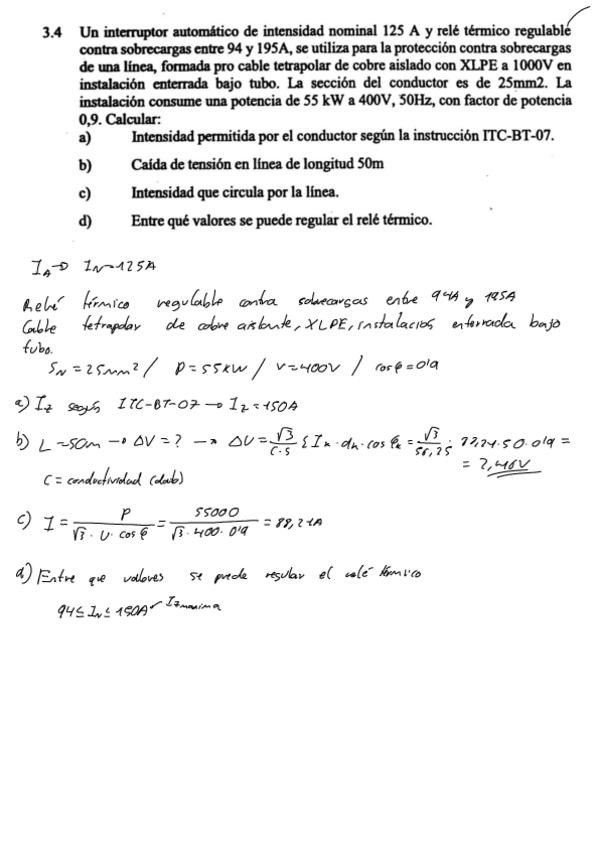 3.4 Un interruptor automático de intensidad nominal 125 A y relé térmico regulable
contra sobrecargas entre 94 y 195A, se utiliza para la protección contra sobrecargas
de una línea, formada pro cable tetrapolar de cobre aislado con XLPE a 1000V en
instalación enterrada bajo tubo. La sección del conductor es de 25mm2. La
instalación consume una potencia de 55 kW a 400V, 50Hz, con factor de potencia
0,9. Calcular:
a) Intensidad permitida por el conductor según la instrucción ITC-BT-07.
b) Caída de tensión en línea de longitud 50m
c) Intensidad que circula por la línea.
d) Entre qué valores se puede regular el relé térmico.
I_A → I_N = 125A
Relé térmico regulable contra sobrecargas entre 94A y 195A
Cable tetrapolar de cobre aislante, XLPE, instalación enterrada bajo
tubo.
S_N = 25mm² / P = 55KW / V = 400V / cos φ = 0'9
a) I_z según ITC-BT-07 → I_z = 150A
b) L = 50m → ΔV = ? → ΔU = √3/(C·S) Σ I_k · d_k · cos φ_k = √3/(56·25) · 88,21 · 50 · 0'9 =
= 2,46V
C = conductividad (dato)
c) I = P/(√3 · U · cos φ) = 55000/(√3 · 400 · 0'9) = 88,21A
d) Entre que valores se puede regular el relé térmico
94 ≤ I_N ≤ 150A I_z maxima